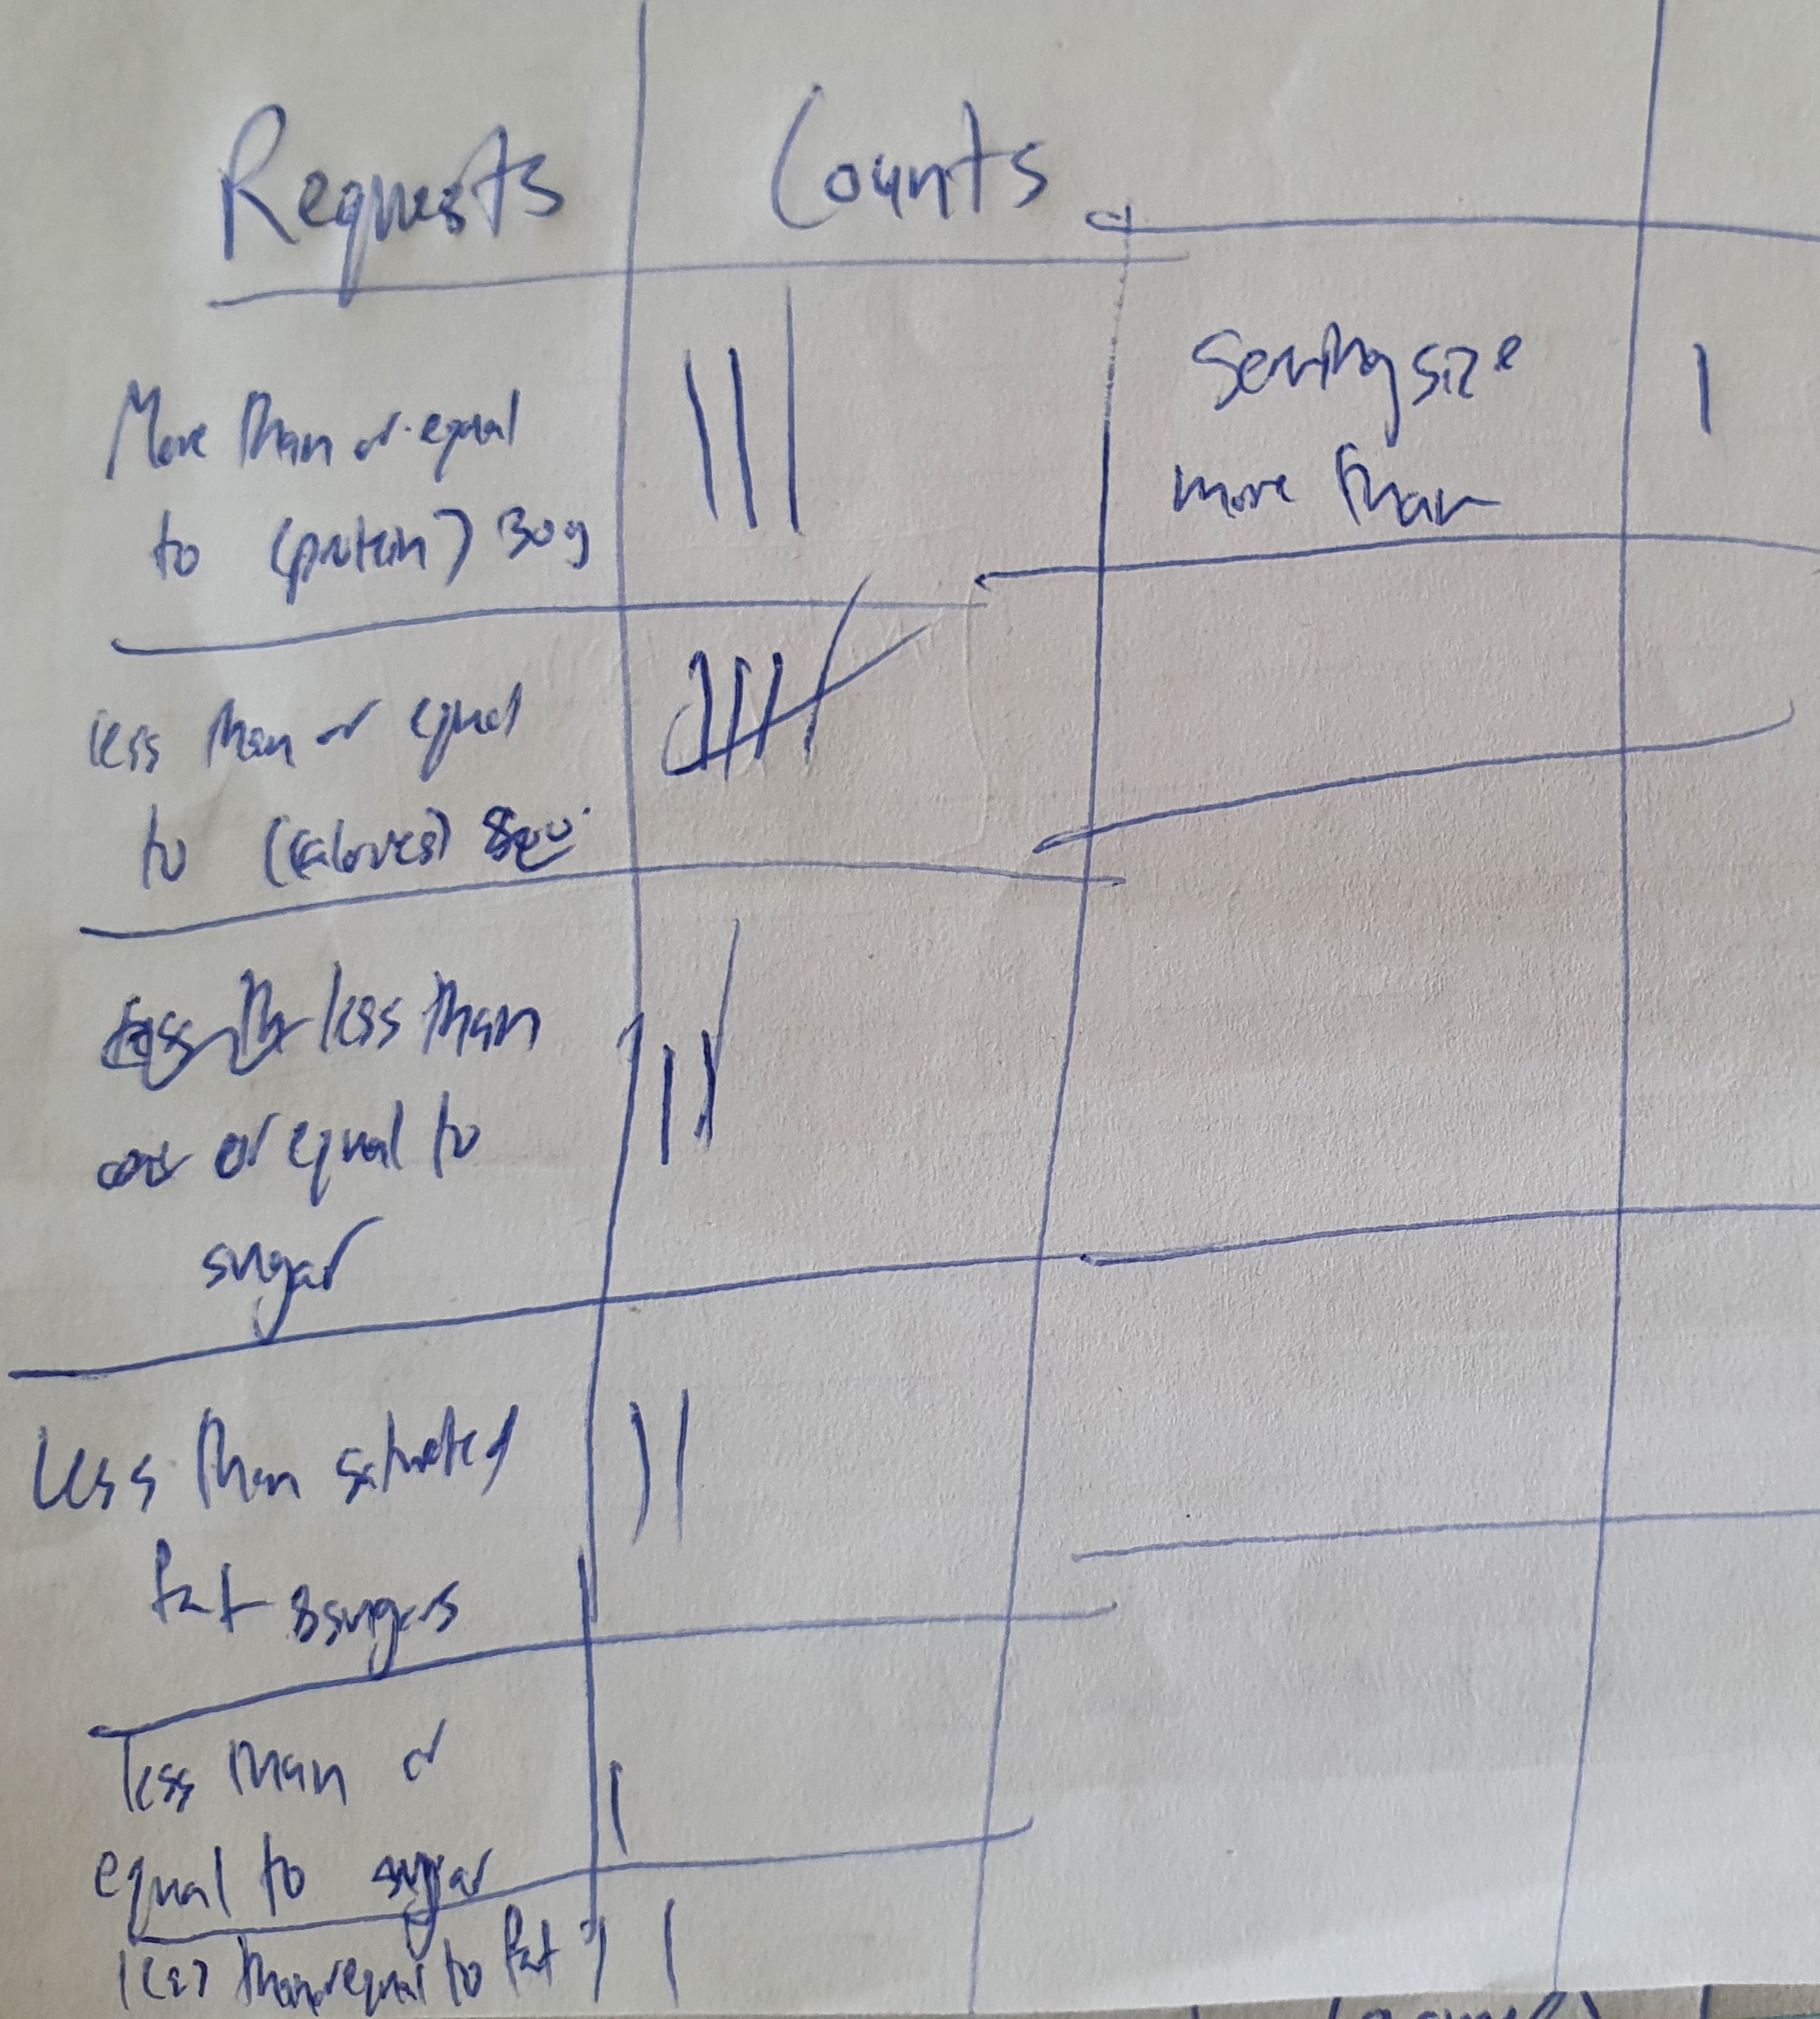 Requests Counts
More than or equal
to (protein) 30g
Serving size
more than
less than or equal
to (calories) 800
less than
or equal to
sugar
Less than saturated
fat & sugars
less than or
equal to sugar
less than or equal to fat